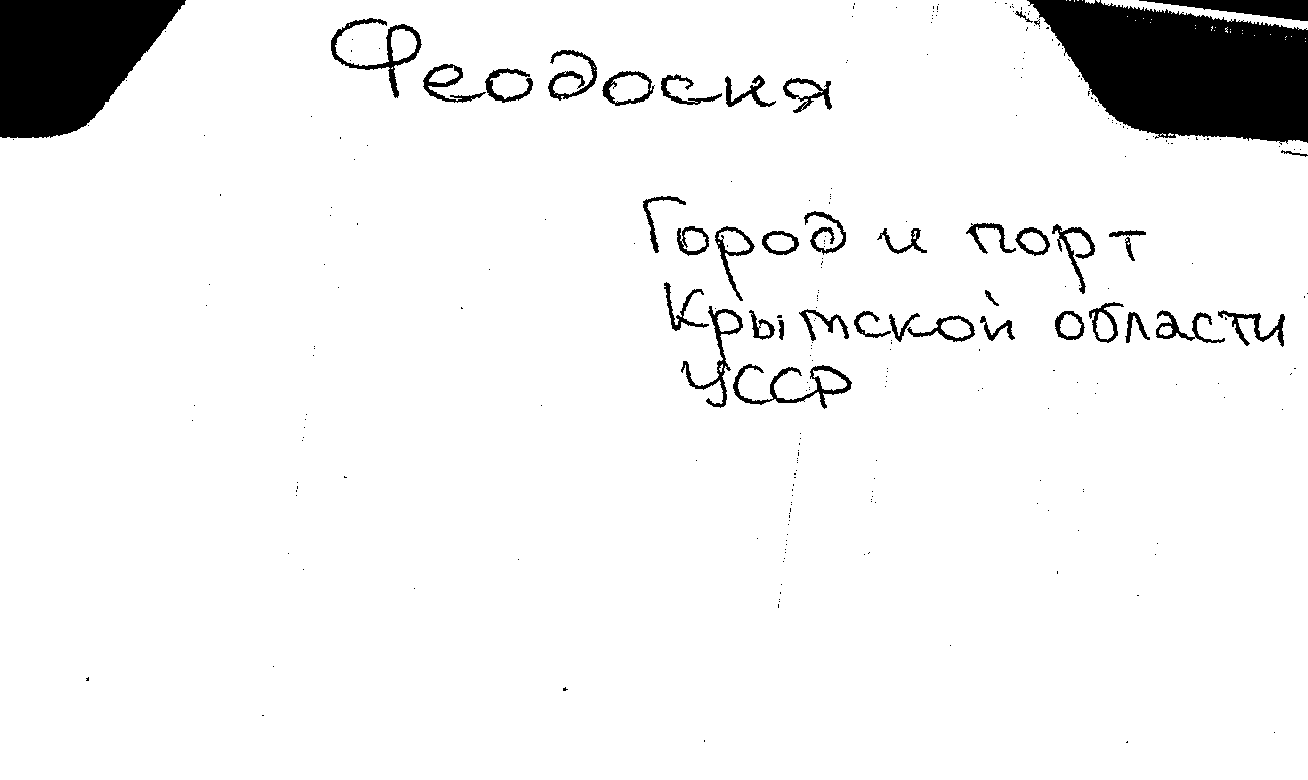 Феодосия
Город и порт
Крымской области
УССР